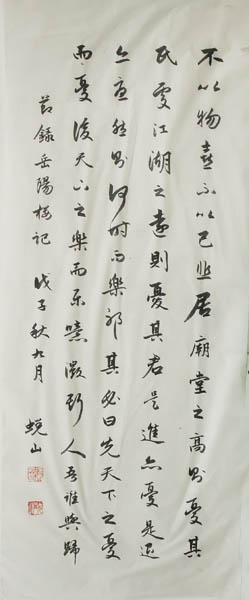 不以物喜不以己悲居廟堂之高則憂其
民處江湖之遠則憂其君是進亦憂是退
亦憂然則何時而樂耶其必曰先天下之憂
而憂後天下之樂而樂噫微斯人吾誰與歸
節錄岳陽樓記 戊子秋九月 蜕山